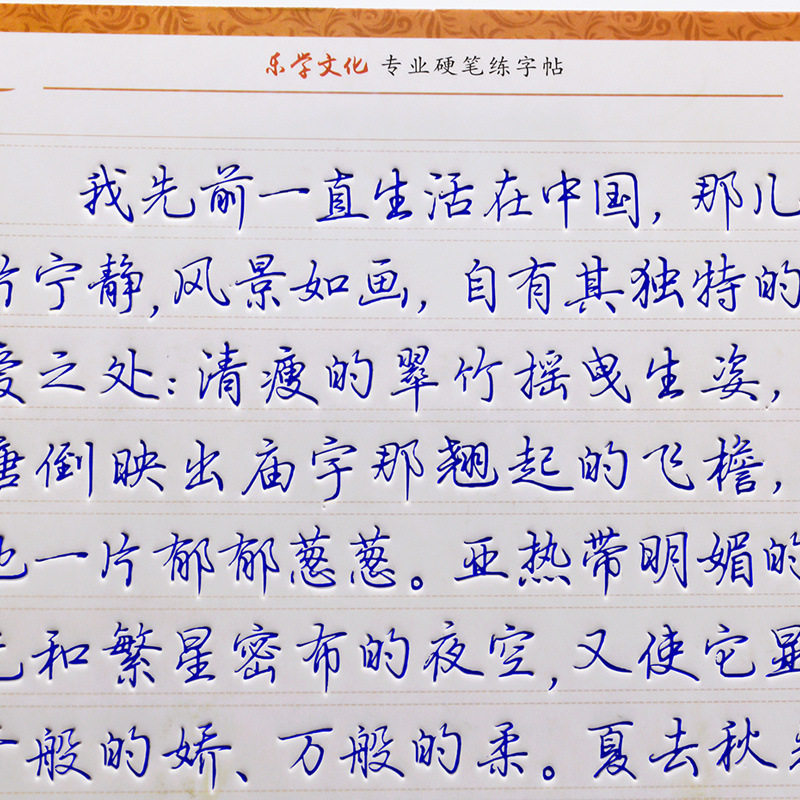 乐学文化 专业硬笔练字帖
我先前一直生活在中国，那儿
宁静，风景如画，自有其独特的
之处：清瘦的翠竹摇曳生姿，
倒映出庙宇那翘起的飞檐，
一片郁郁葱葱。亚热带明媚的
和繁星密布的夜空，又使它显
般的娇、万般的柔。夏去秋